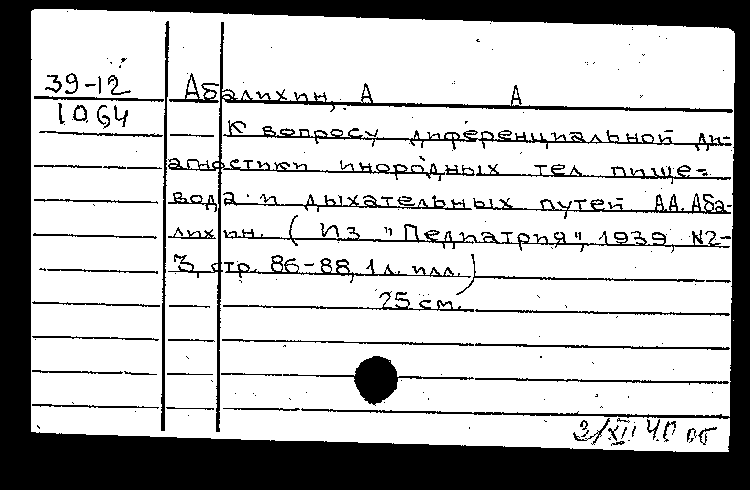 39-12 Абалихин, А А
1064 К вопросу диференциальной ди=
агностики инородных тел пище=
вода и дыхательных путей А.А. Аба-
лихин. (Из "Педиатрия", 1939, N2-
3, стр. 86-88, 1 л. илл.)
25 см.
3/XII 40 об